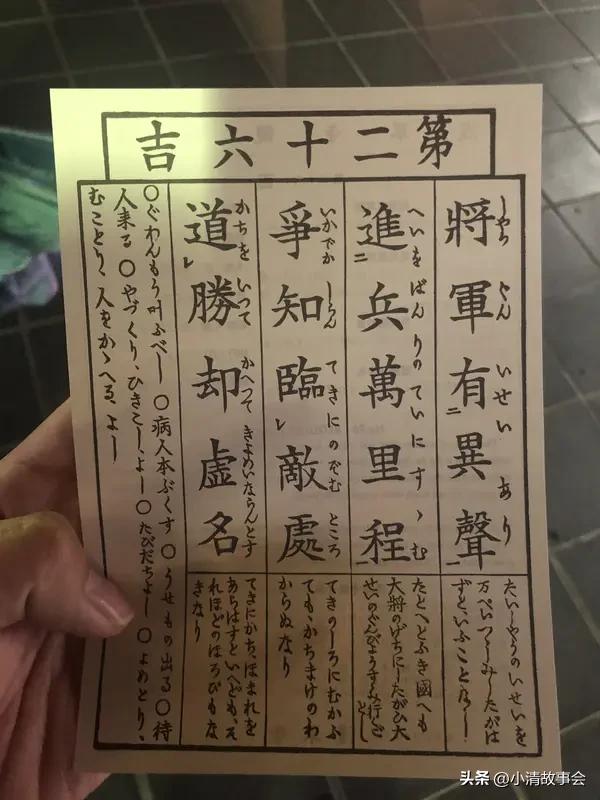 第二十六吉
將軍有異聲
しやう ぐん いせい あり
たいしやうのいせいを
万ぺいつゝしみしたがは
ずといふことなし
進兵萬里程
へいを ばんりの ていに すゝむ
たとへとふき國へも
大将のげちにしたがひ大
せいのぐんびやうすゝみ行ごとし
爭知臨敵處
いかでか しらん てきに のぞむ ところ
てきのしろにむかふ
ても、かちまけのわ
からぬなり
道勝却虚名
かちを いつて かへつて きよめいならんとす
てきにかち、ほまれを
あらはすといへども、そ
れほどのほろびもな
きなり
○ぐわんもう叶ふべし ○病人本ぶくす ○うせもの出る ○待
人来る ○やづくり、ひきこし、よし ○たびだちよし ○よめとり、
むことり、人をかゝへる、よし
头条 @小清故事会